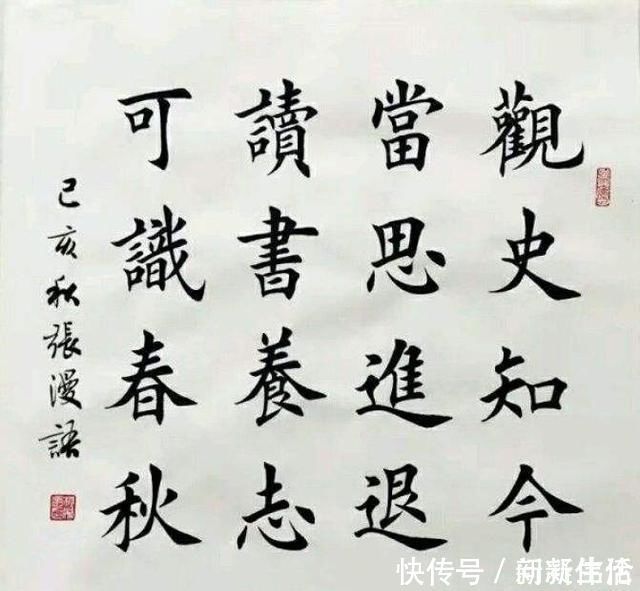 觀史知今
當思進退
讀書養志
可識春秋
己亥秋張漫語
快传号／新新生活